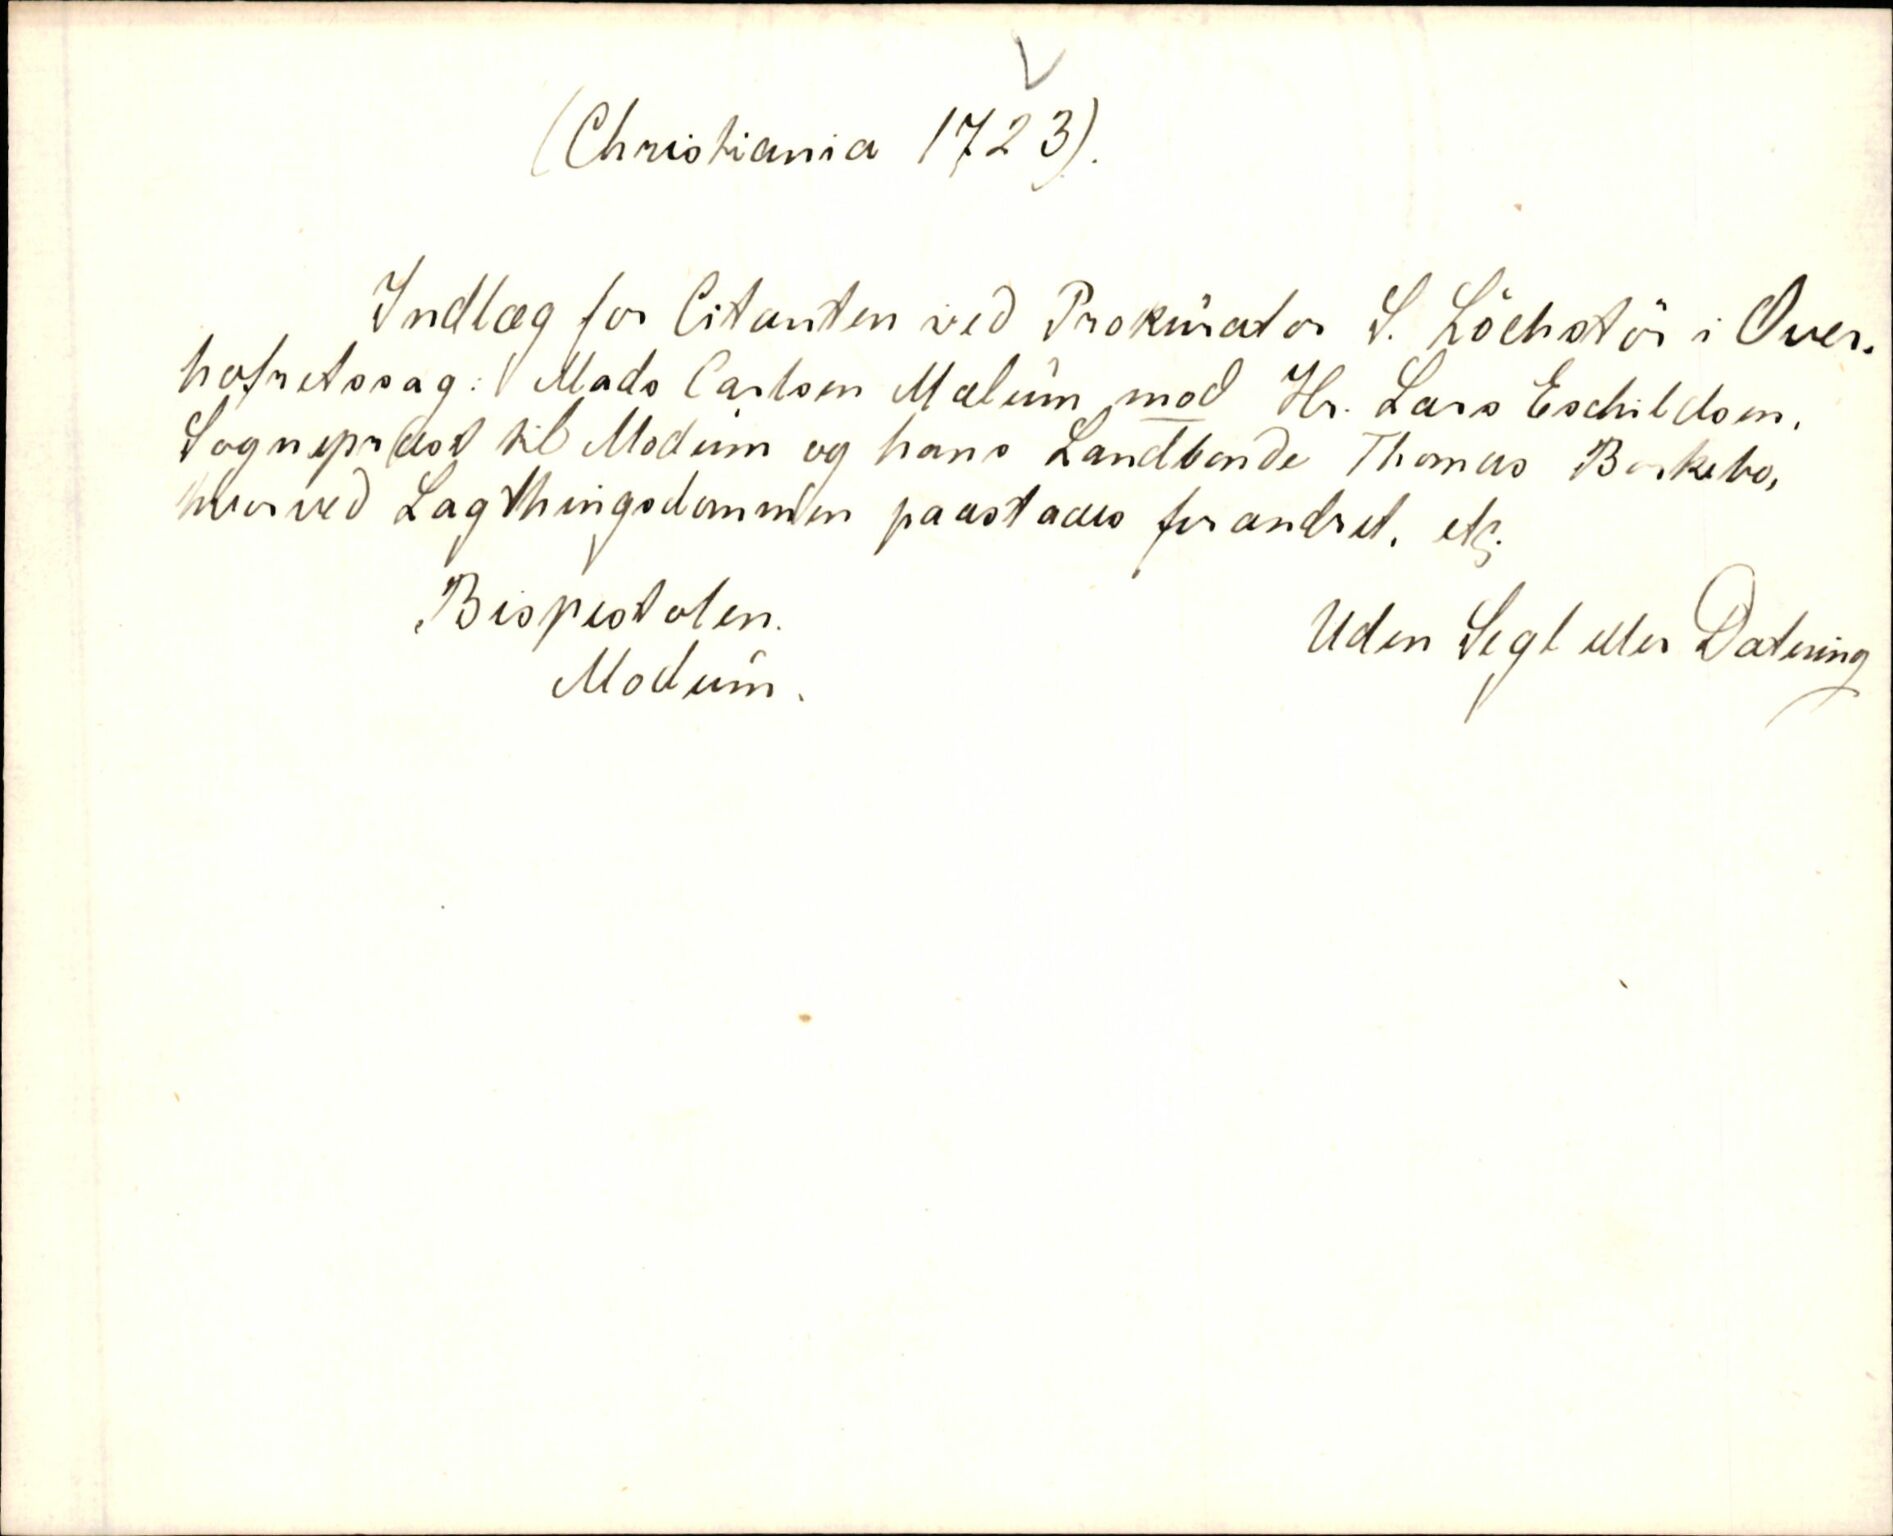 (Christiania 1723).
Indlæg for Citanten ved Prokurator S. Löchstör i Over-
hofretssag: Mads Carlsen Mælum mod Hr. Lars Eschildsen,
Sognepræst til Modum og hans Landbonde Thomas Borkebo,
hvorved Lagthingsdommen paastaaes forandret, etc.
Bispestolen.
Uden Segl eller Datering
Modum.